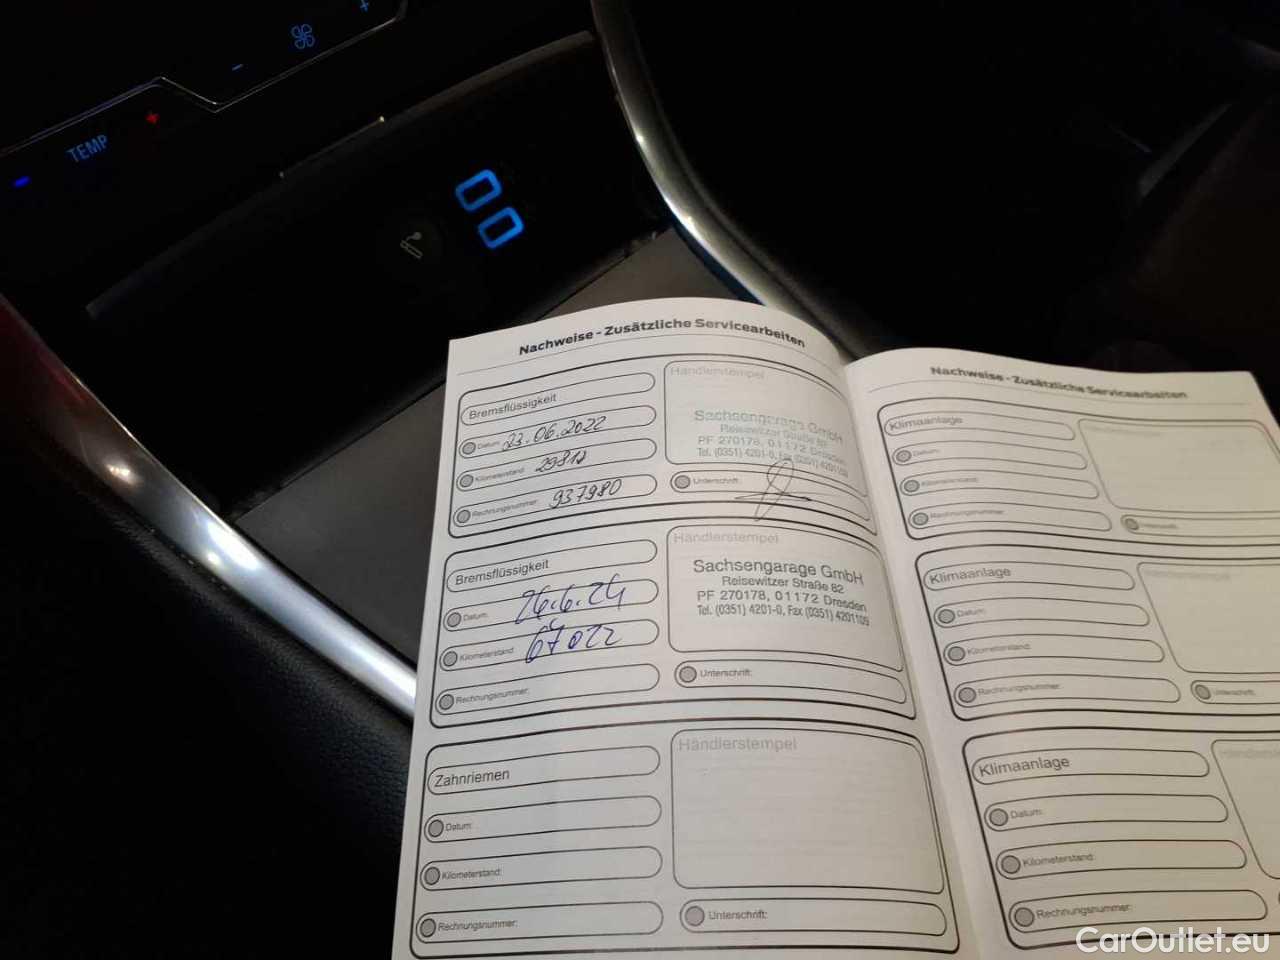 TEMP
Nachweise - Zusätzliche Servicearbeiten
Bremsflüssigkeit
Datum: 23.06.2022
Kilometerstand:
Rechnungsnummer: 937980
Händlerstempel
Sachsengarage GmbH
Reisewitzer Straße 82
PF 270178, 01172 Dresden
Tel. (0351) 4201-0, Fax (0351) 4201109
Unterschrift:
Bremsflüssigkeit
Datum: 26.6.24
Kilometerstand: 67022
Rechnungsnummer:
Händlerstempel
Sachsengarage GmbH
Reisewitzer Straße 82
PF 270178, 01172 Dresden
Tel. (0351) 4201-0, Fax (0351) 4201109
Unterschrift:
Zahnriemen
Datum:
Kilometerstand:
Rechnungsnummer:
Händlerstempel
Unterschrift:
Nachweise - Zusätzliche Servicearbeiten
Klimaanlage
Datum:
Kilometerstand:
Rechnungsnummer:
Händlerstempel
Unterschrift:
Klimaanlage
Datum:
Kilometerstand:
Rechnungsnummer:
Händlerstempel
Unterschrift:
Klimaanlage
Datum:
Kilometerstand:
Rechnungsnummer:
CarOutlet.eu